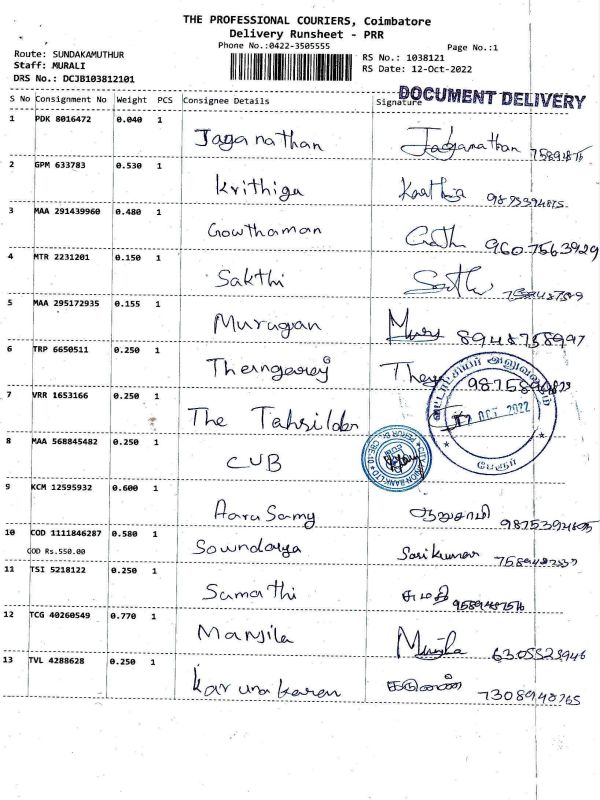 THE PROFESSIONAL COURIERS, Coimbatore
Delivery Runsheet - PRR
Phone No.:0422-3505555
Page No.:1
Route: SUNDAKAMUTHUR
Staff: MURALI
DRS No.: DCJB103812101
RS No.: 1038121
RS Date: 12-Oct-2022
DOCUMENT DELIVERY
S No Consignment No Weight PCS Consignee Details Signature
1 PDK 8016472 0.040 1
Jaganathan Jaganathan
2 GPM 633783 0.530 1
Krithiga
3 MAA 291439960 0.480 1
Gowthaman 9607563929
4 MTR 2231201 0.150 1
Sakthi
5 MAA 295172935 0.155 1
Murugan 8948758997
6 TRP 6650511 0.250 1
7 VRR 1653166 0.250 1
The Tahsildar
வட்டாட்சியர் அலுவலகம்
12 OCT 2022
பேரூர்
8 MAA 568845482 0.250 1
CUB
9 KCM 12595932 0.600 1
AaruSamy
10 COD 1111846287 0.580 1
COD Rs.550.00
Soundarya Sasikumar
11 TSI 5218122 0.250 1
Sumathi சுமதி
12 TCG 40260549 0.770 1
Manjila
13 TVL 4288628 0.250 1
Karunakaran 7308948765